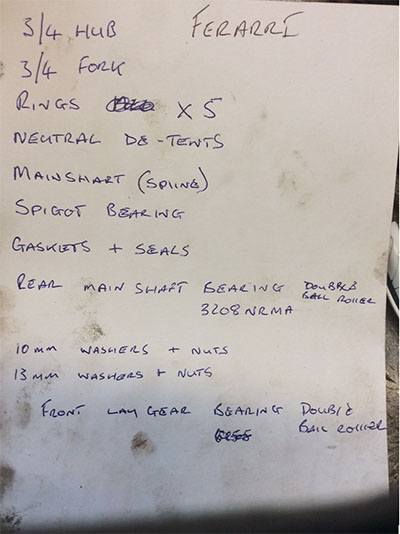 3/4 HUB FERARRI
3/4 FORK
RINGS X 5
NEUTRAL DE-TENTS
MAINSHAFT (SPLINE)
SPIGOT BEARING
GASKETS + SEALS
REAR MAIN SHAFT BEARING DOUBLE BALL ROLLER
3208 NRMA
10mm WASHERS + NUTS
13mm WASHERS + NUTS
FRONT LAY GEAR BEARING DOUBLE BALL ROLLER